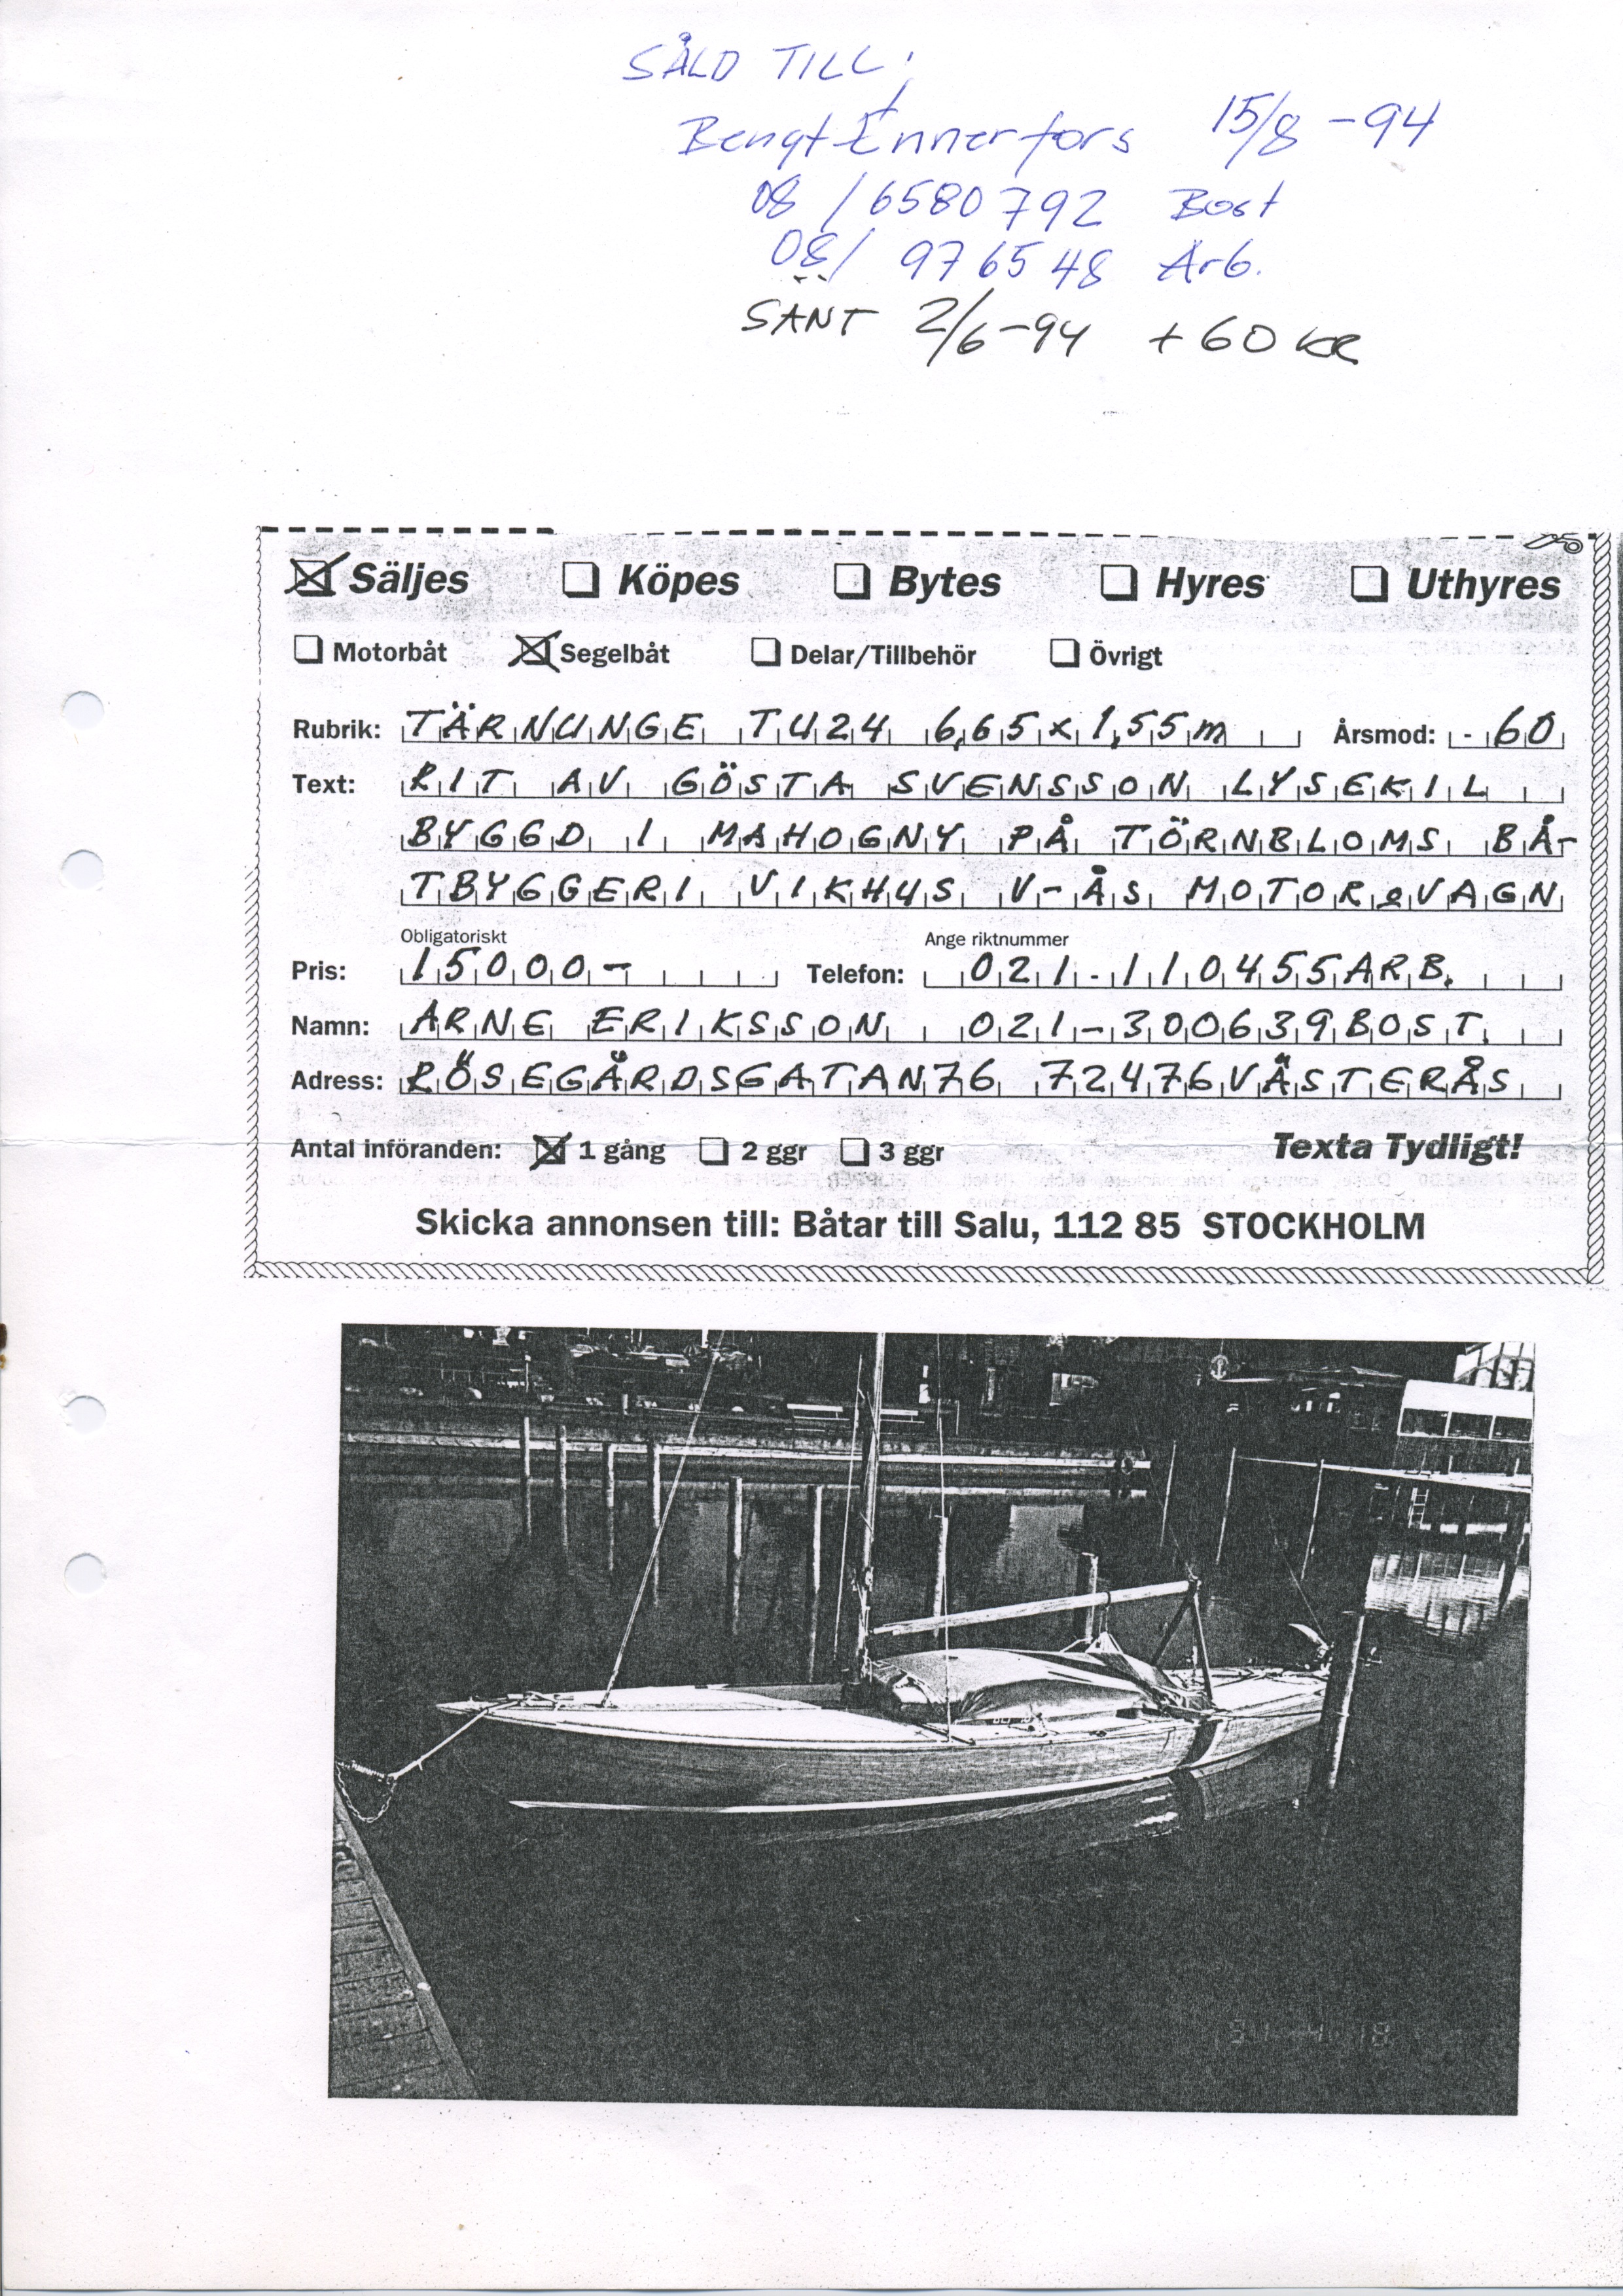 SÅLD TILL:
Bengt Ennerfors 15/8 -94
08 / 6580792 Bost
08/ 976548 Arb.
SÄNT 2/6-94 +60 KR
Säljes Köpes Bytes Hyres Uthyres
Motorbåt Segelbåt Delar/Tillbehör Övrigt
Rubrik: TÄRNUNGE TU24 6,65x1,55m Årsmod: -60
Text: RIT AV GÖSTA SVENSSON LYSEKIL
BYGGD I MAHOGNY PÅ TÖRNBLOMS BÅ-
TBYGGERI VIKHUS V-ÅS MOTOR&VAGN
Obligatoriskt Ange riktnummer
Pris: 15000- Telefon: 021-110455 ARB.
Namn: ARNE ERIKSSON 021-300639 BOST.
Adress: RÖSEGÅRDSGATAN 76 72476 VÄSTERÅS
Antal införanden: 1 gång 2 ggr 3 ggr Texta Tydligt!
Skicka annonsen till: Båtar till Salu, 112 85 STOCKHOLM